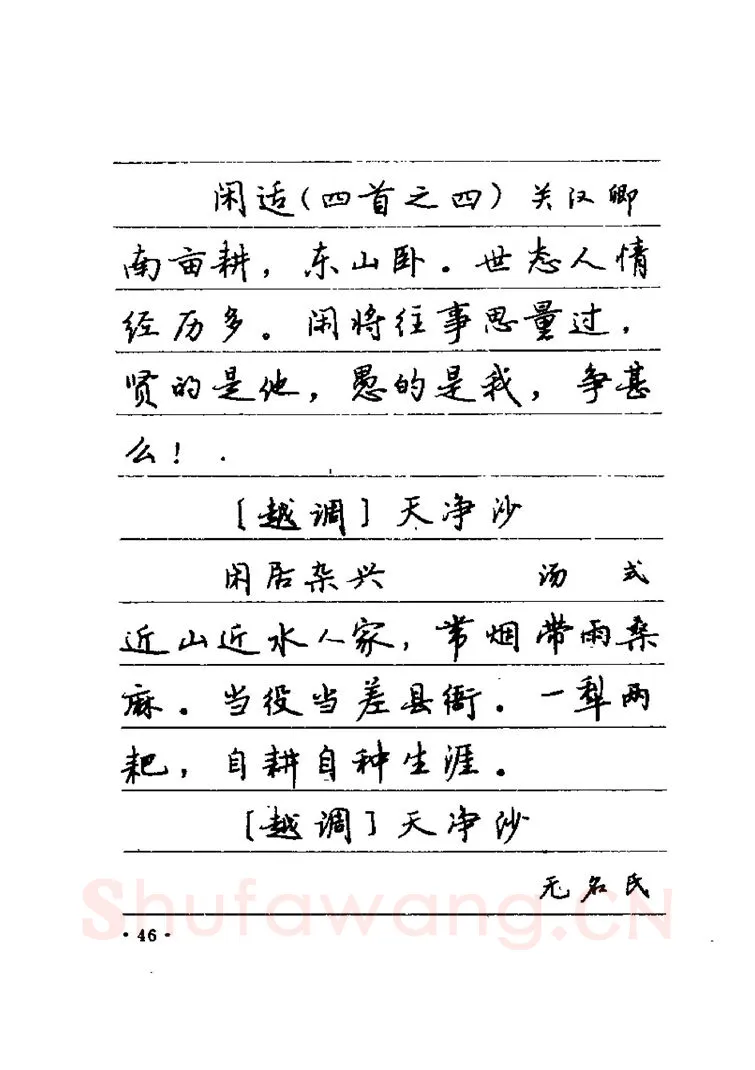 闲适(四首之四)关汉卿
南亩耕，东山卧。世态人情
经历多。闲将往事思量过，
贤的是他，愚的是我，争甚
么！
[越调]天净沙
闲居杂兴 汤式
近山近水人家，带烟带雨桑
麻。当役当差县衙。一犁两
耙，自耕自种生涯。
[越调]天净沙
无名氏
Shufawang.CN
·46·